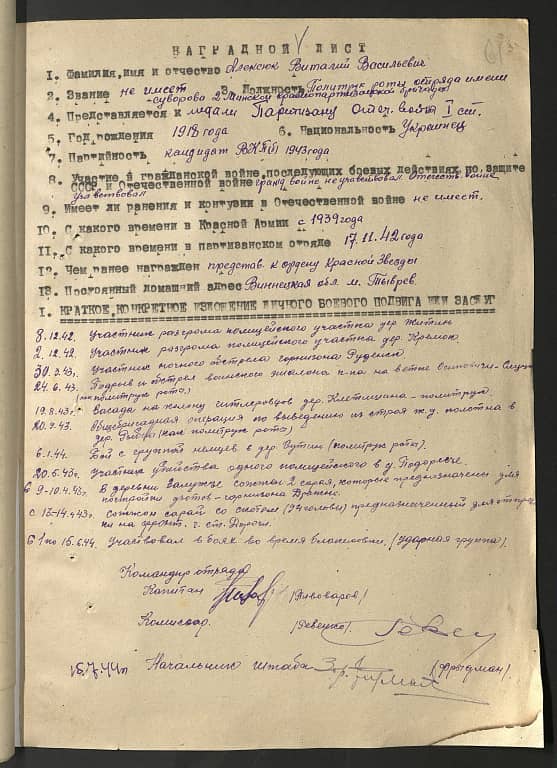 НАГРАДНОЙ ЛИСТ
1. Фамилия, имя и отчество Алексюк Виталий Васильевич
2. Звание не имеет 3. Должность Политрук роты отряда имени
Суворова 2 Минской партизанской бригады
4. Представляется к медали Партизану Отеч. войны I ст.
5. Год рождения 1918 года 6. Национальность Украинец
7. Партийность кандидат ВКП(б) 1943 года
8. Участие в гражданской войне, последующих боевых действиях по защите
СССР и Отечественной войне гражд. войне не участвовал. Отечеств. войне
участвовал
9. Имеет ли ранения и контузии в Отечественной войне не имеет.
10. С какого времени в Красной Армии с 1939 года
11. С какого времени в партизанском отряде 17.11.42 года
12. Чем ранее награжден представ. к ордену Красной Звезды
13. Постоянный домашний адрес Винницкая обл. м. Тывров.
I. КРАТКОЕ, КОНКРЕТНОЕ ИЗЛОЖЕНИЕ ЛИЧНОГО БОЕВОГО ПОДВИГА ИЛИ ЗАСЛУГ
8.12.42. Участник разгрома полицейского участка дер. Житин
2.12.42. Участник разгрома полицейского участка дер.
30.3.43г. Участник ночного обстрела гарнизона Руденск
24.6.43. Подрыв и обстрел воинского эшалона п-ка на ветке Осиповичи-Слуцк
(как политрук роты)
19.8.43г. Засада на колону гитлеровцов дер. - политрук.
20.9.43. Общебригадная операция по выведению из строя ж.д. полотна в
дер. (как политрук роты)
6.1.44. Бой с группой немцев в дер. (политрук роты).
20.5.43г. Участник убийства одного полицейского в д. Подоресье.
С 9-10.4.43г. В деревни Залужье сожжен 2 сарая, которые предназначены для
постройки дзотов - гарнизона
с 13-14.4.43г. сожжен сарай со скотом (94 головы) предназначенный для отправ-
ки на фронт. г. ст. Дороги.
С 1 по 15.6.44. Участвовал в боях во время блакировки. (ударная группа).
Командир отряда
Капитан (Пивоваров)
Комиссар
15.7.44г. Начальник штаба (Фрыдман)